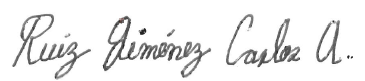 Ruiz Jiménez Carlos A.